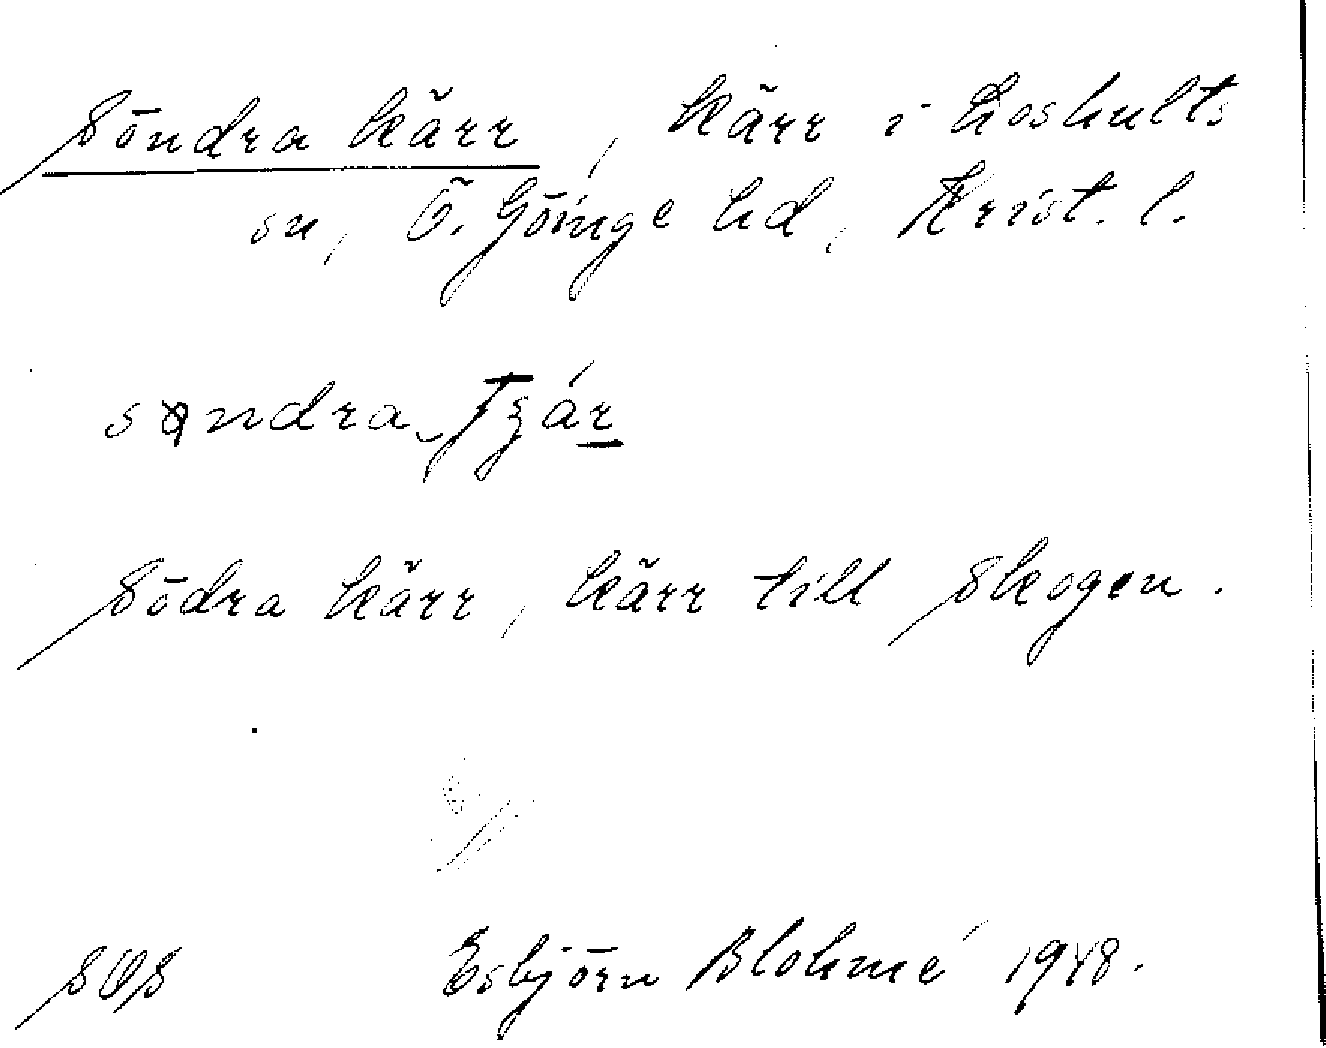 Söndra kärr, kärr i Loshults
sn, Ö. Göinge hd, Krist. l.
Södra kärr, kärr till Skogen.
Esbjörn Blohmé 1948.